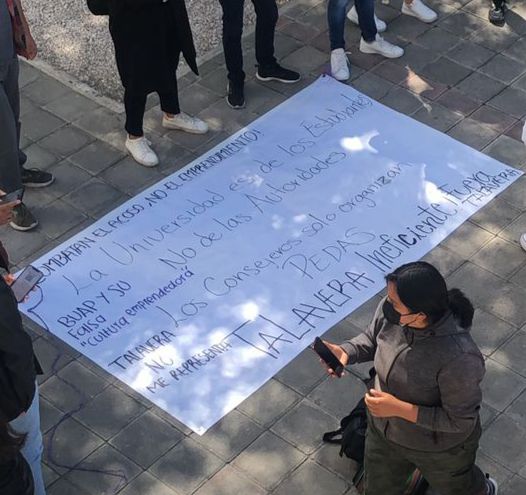 COMBATAN EL ACOSO, NO EL EMPRENDIMIENTO!
La Universidad es de los Estudiantes
No de las Autoridades
BUAP Y SU
Falsa
"cultura emprendedora
Los Consejeros solo organizan
PEDAS
TALAVERA
NO
ME REPRESENTA
TALAVERA Ineficiente
Fuera
TALAVERA!